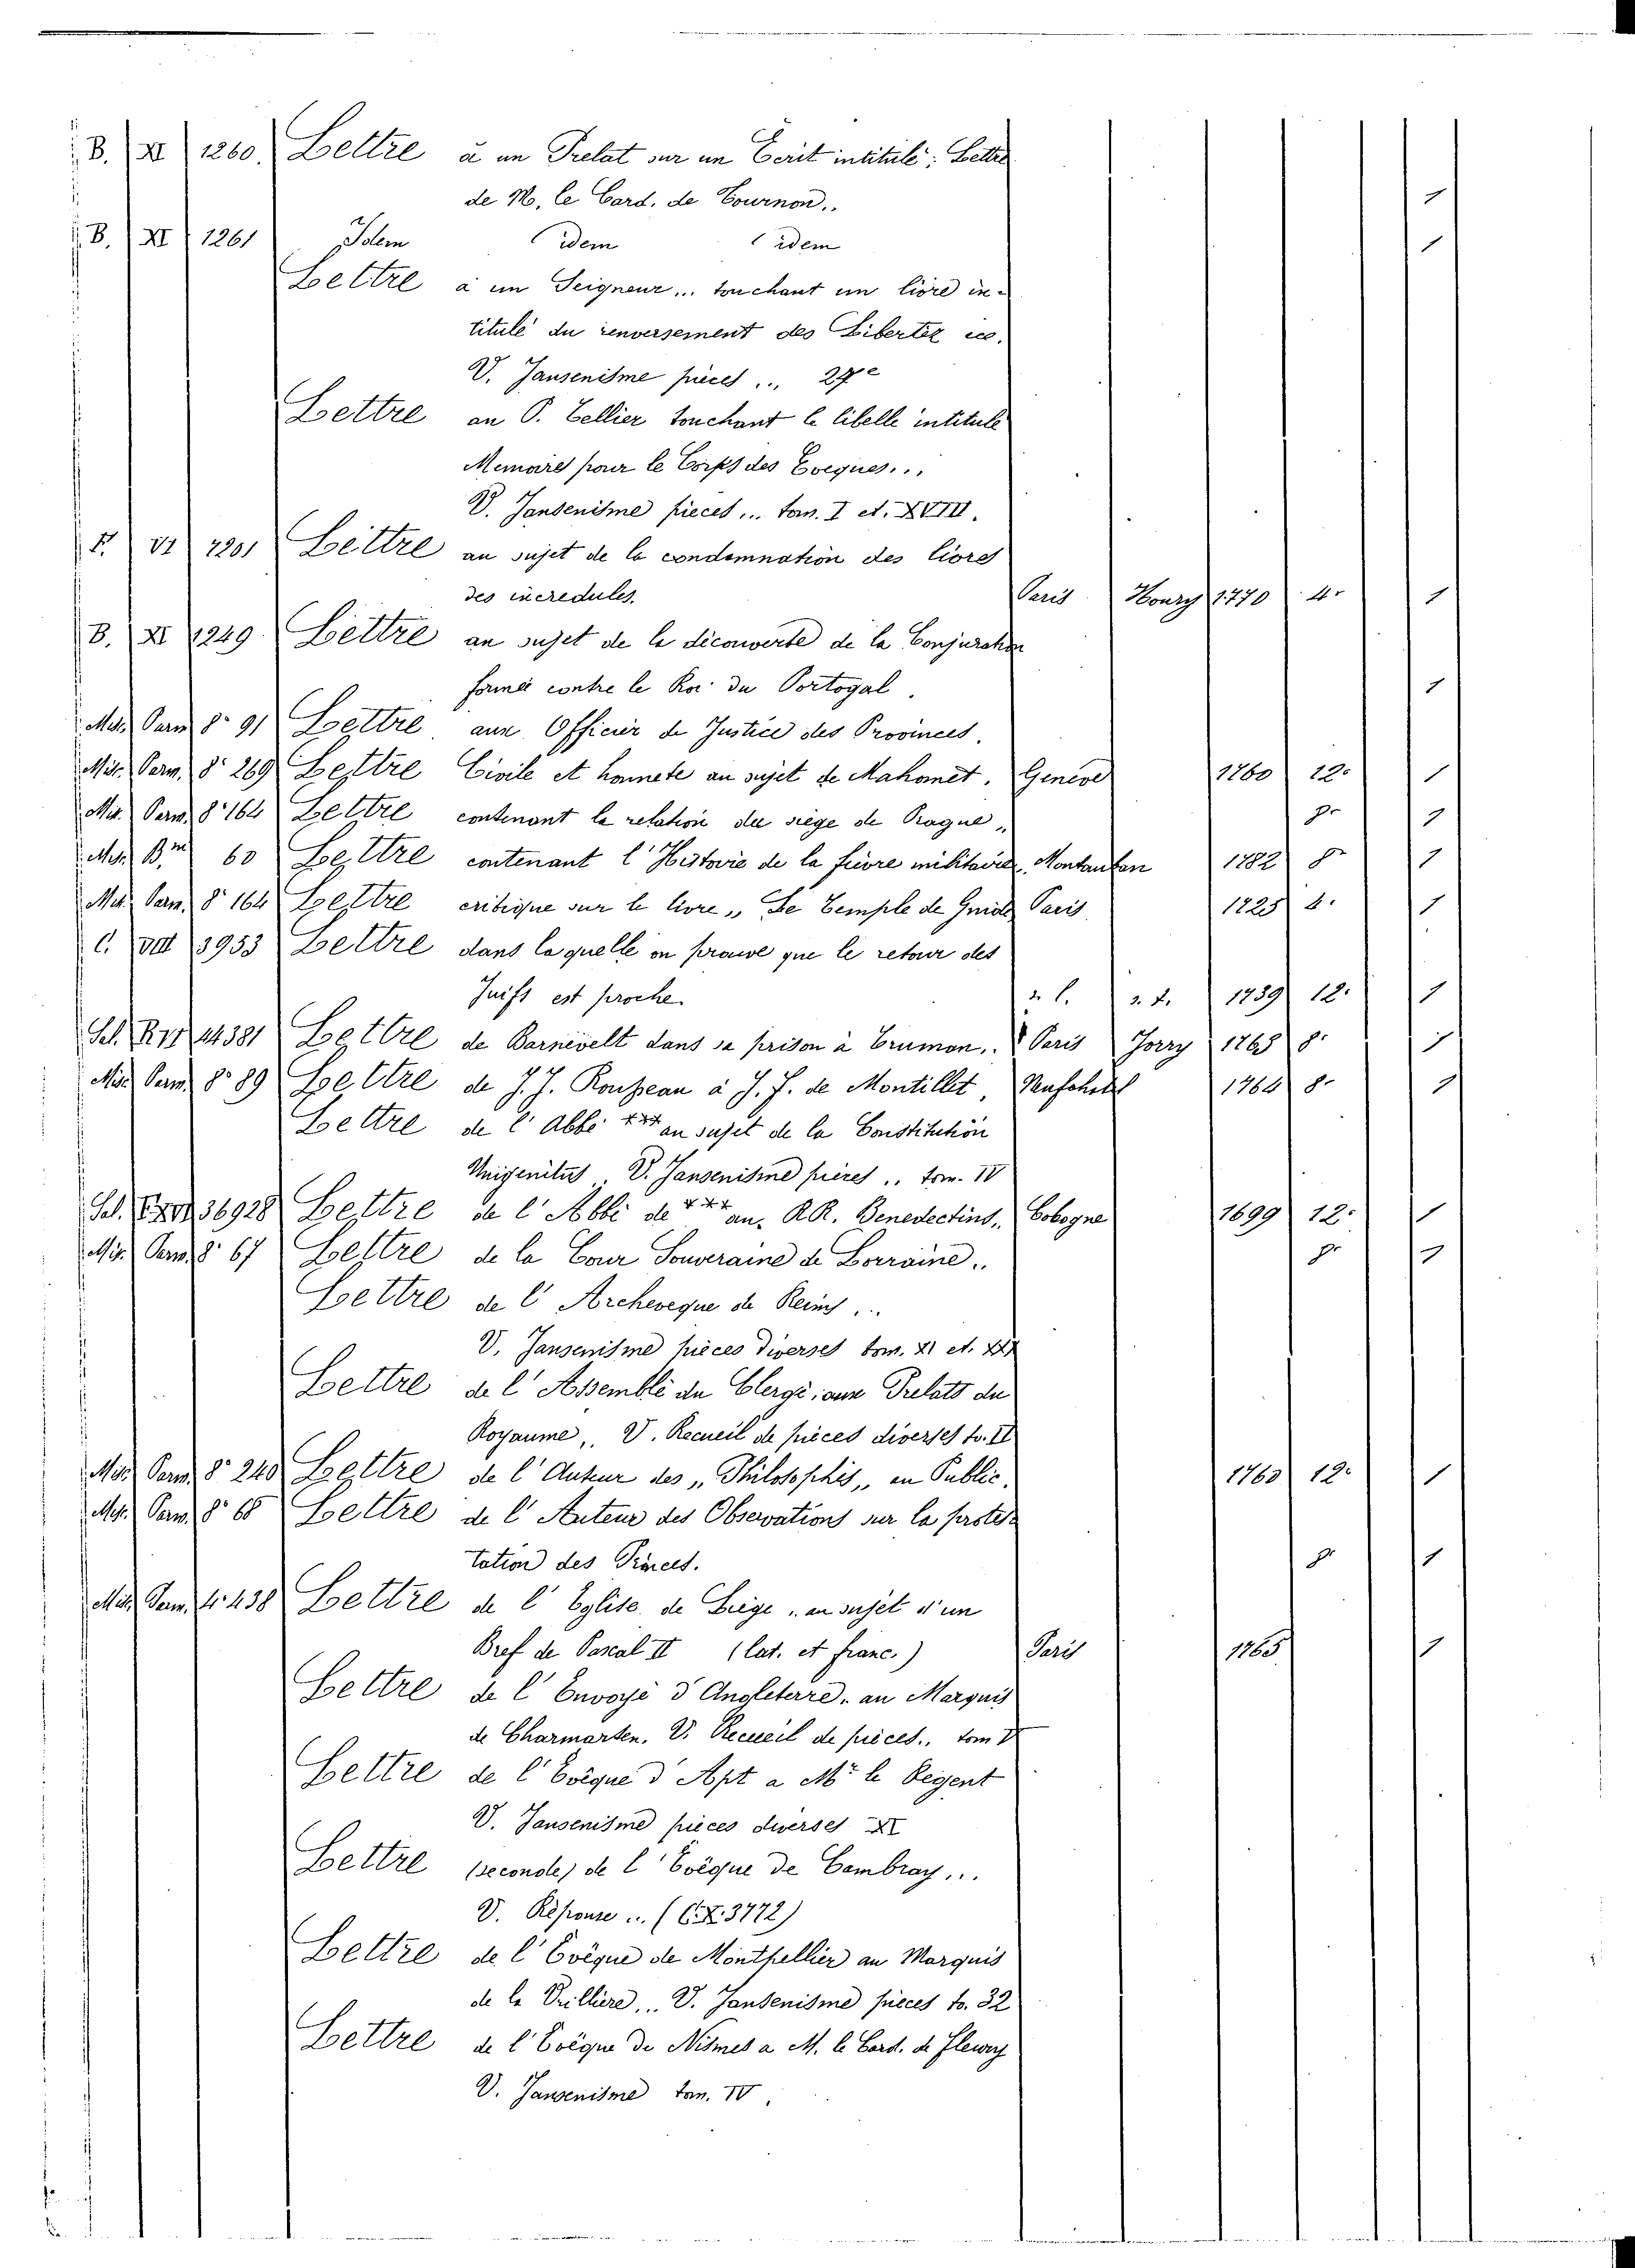 B. XI 1260. Lettre à un Prelat sur un Ecrit intitulé: Lettre
de M. le Card. de Tournon.. 1
B. XI 1261 Idem idem idem 1
Lettre à un Seigneur... touchant un livre in-
titulé du renversement des Libertez
V. Jansenisme pièces...
Lettre au P. Tellier touchant le libelle intitulé
Memoires pour le Corps des Eveques...
V. Jansenisme pieces... tom. I et. XVIII.
F. VI 7201 Lettre au sujet de la condamnation des livres
des incredules. Paris Houry 1770 4° 1
B. XI 1249 Lettre au sujet de la découverte de la Conjuration
formée contre le Roi du Portogal. 1
Mis. Parm. 8° 91 Lettre aux Officier de Justice des Provinces.
Mis. Parm. 8° 269 Lettre Civile et honnete au sujet de Mahomet. Geneve 1760 12° 1
Mis. Parm. 8° 164 Lettre contenant la relation du siege de Prague,, 8° 1
Mis. B.m 60 Lettre contenant l'Histoire de la fievre militaire. Montauban 1782 8° 1
Mis. Parm. 8° 164 Lettre critique sur le livre,, Le Temple de Gnide Paris 1725 8. 1
C. VIII 3953 Lettre dans laquelle on prouve que le retour des
Juifs est proche. s. l. s. t. 1739 12° 1
Sel. 14381 Lettre de Barnevelt dans sa prison à Truman.. Paris Jorry 1763 8° 1
Mis. Parm. 8° 89 Lettre de J. J. Rousseau à J. F. de Montillet, Neufchatel 1764 8° 1
Lettre de l'Abbé *** au sujet de la Constitution
Unigenitus. V. Jansenisme pieces.. tom. IV
Sel. 36928 Lettre de l'Abbé de *** au. RR. Benedectins,. Cologne 1699 12° 1
Mis. Parm. 8° 67 Lettre de la Cour Souveraine de Lorraine.. 8° 1
Lettre de l'Archeveque de Reims...
V. Jansenisme pièces diverses tom. XI et.
Lettre de l'Assemblé du Clergé, aux Prelats du
Royaume,. V. Recueil de pièces diverses to. II
Mis. Parm. 8° 240 Lettre de l'Auteur des,, Philosophis,, au Public. 1760 12° 1
Mis. Parm. 8° 68 Lettre de l'Auteur des Observations sur la protes-
tation des Princes. 8° 1
Mis. Parm. 4° 438 Lettre de l'Eglise de Liege, au sujet d'un
Bref de Pascal II (lat. et franc.) Paris 1765 1
Lettre de l'Envoyé d'Angleterre. au Marquis
de Charmarten. V. Recueil de pièces.. tom V
Lettre de l'Evèque d'Apt a Mr le Regent
V. Jansenisme pièces diverses XI
Lettre (seconde) de l'Evèque de Cambray...
V. Réponse... (C. X. 3772)
Lettre de l'Evèque de Montpellier au Marquis
de la Vrilliere... V. Jansenisme pieces to. 32
Lettre de l'Evèque de Nismes a M. le Card. de Fleury
V. Jansenisme tom. IV.